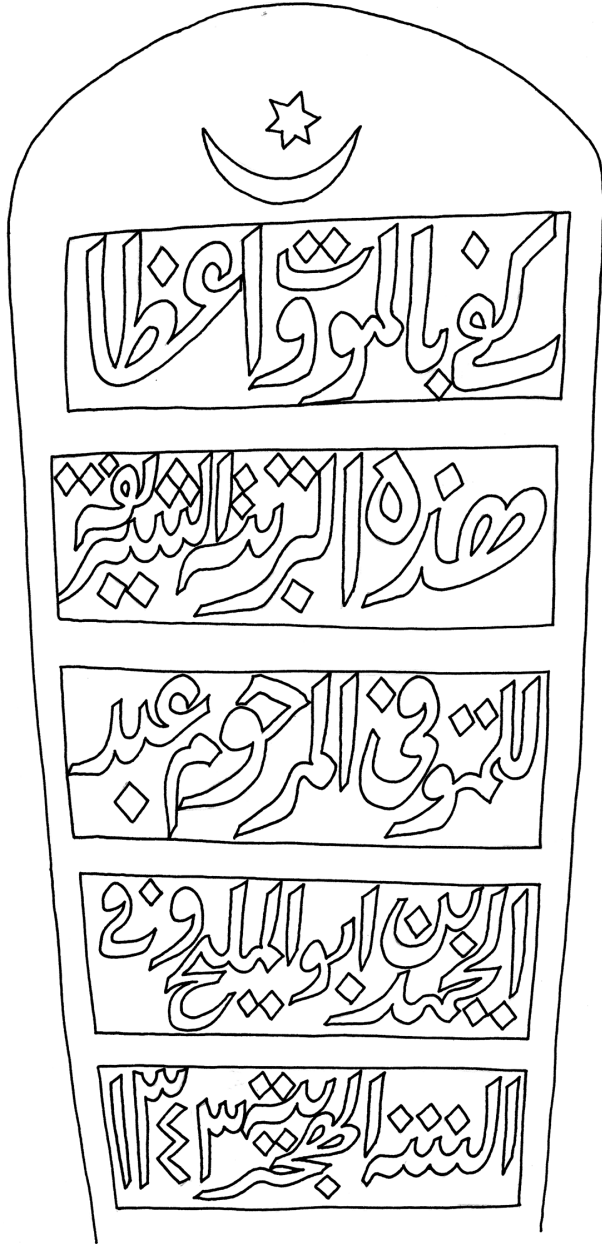 كفي بالموت واعظا
هذه التربة الشريفة
للمتوفى المرحوم عبد
الحميد بن ابو المليح وفي
السنة الهجرية ١٣٤٣